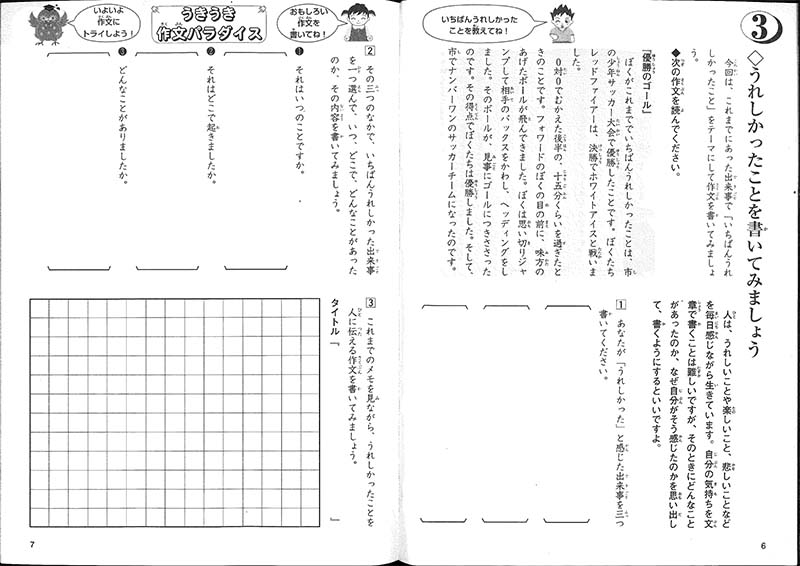 3
◇うれしかったことを書いてみましょう
今回は、これまでにあった出来事で「いちばんうれ
しかったこと」をテーマにして作文を書いてみましょ
う。
◆次の作文を読んでください。
「優勝のゴール」
ぼくがこれまででいちばんうれしかったことは、市
の少年サッカー大会で優勝したことです。ぼくたち
レッドファイアーは、決勝でホワイトアイスと戦いま
した。
0対0でむかえた後半の、十五分くらいを過ぎたと
きのことです。フォワードのぼくの目の前に、味方の
あげたボールが飛んできました。ぼくは思い切りジャ
ンプして相手のバックスをかわし、ヘッディングをし
ました。そのボールが、見事にゴールにつきささった
のです。その得点でぼくたちは優勝しました。そして、
市でナンバーワンのサッカーチームになったのです。
いちばんうれしかった
ことを教えてね!
人は、うれしいことや楽しいこと、悲しいことなど
を毎日感じながら生きています。自分の気持ちを文
章で書くことは難しいですが、そのときにどんなこと
があったのか、なぜ自分がそう感じたのかを思い出し
て、書くようにするといいですよ。
1 あなたが「うれしかった」と感じた出来事を三つ
書いてください。
6
おもしろい
作文を
書いてね!
うきうき
作文パラダイス
いよいよ
作文に
トライしよう!
2 その三つのなかで、いちばんうれしかった出来事
を一つ選んで、いつ、どこで、どんなことがあった
のか、その内容を書いてみましょう。
❶ それはいつのことですか。
❷ それはどこで起きましたか。
❸ どんなことがありましたか。
3 これまでのメモを見ながら、うれしかったことを
人に伝える作文を書いてみましょう。
タイトル「 」
7